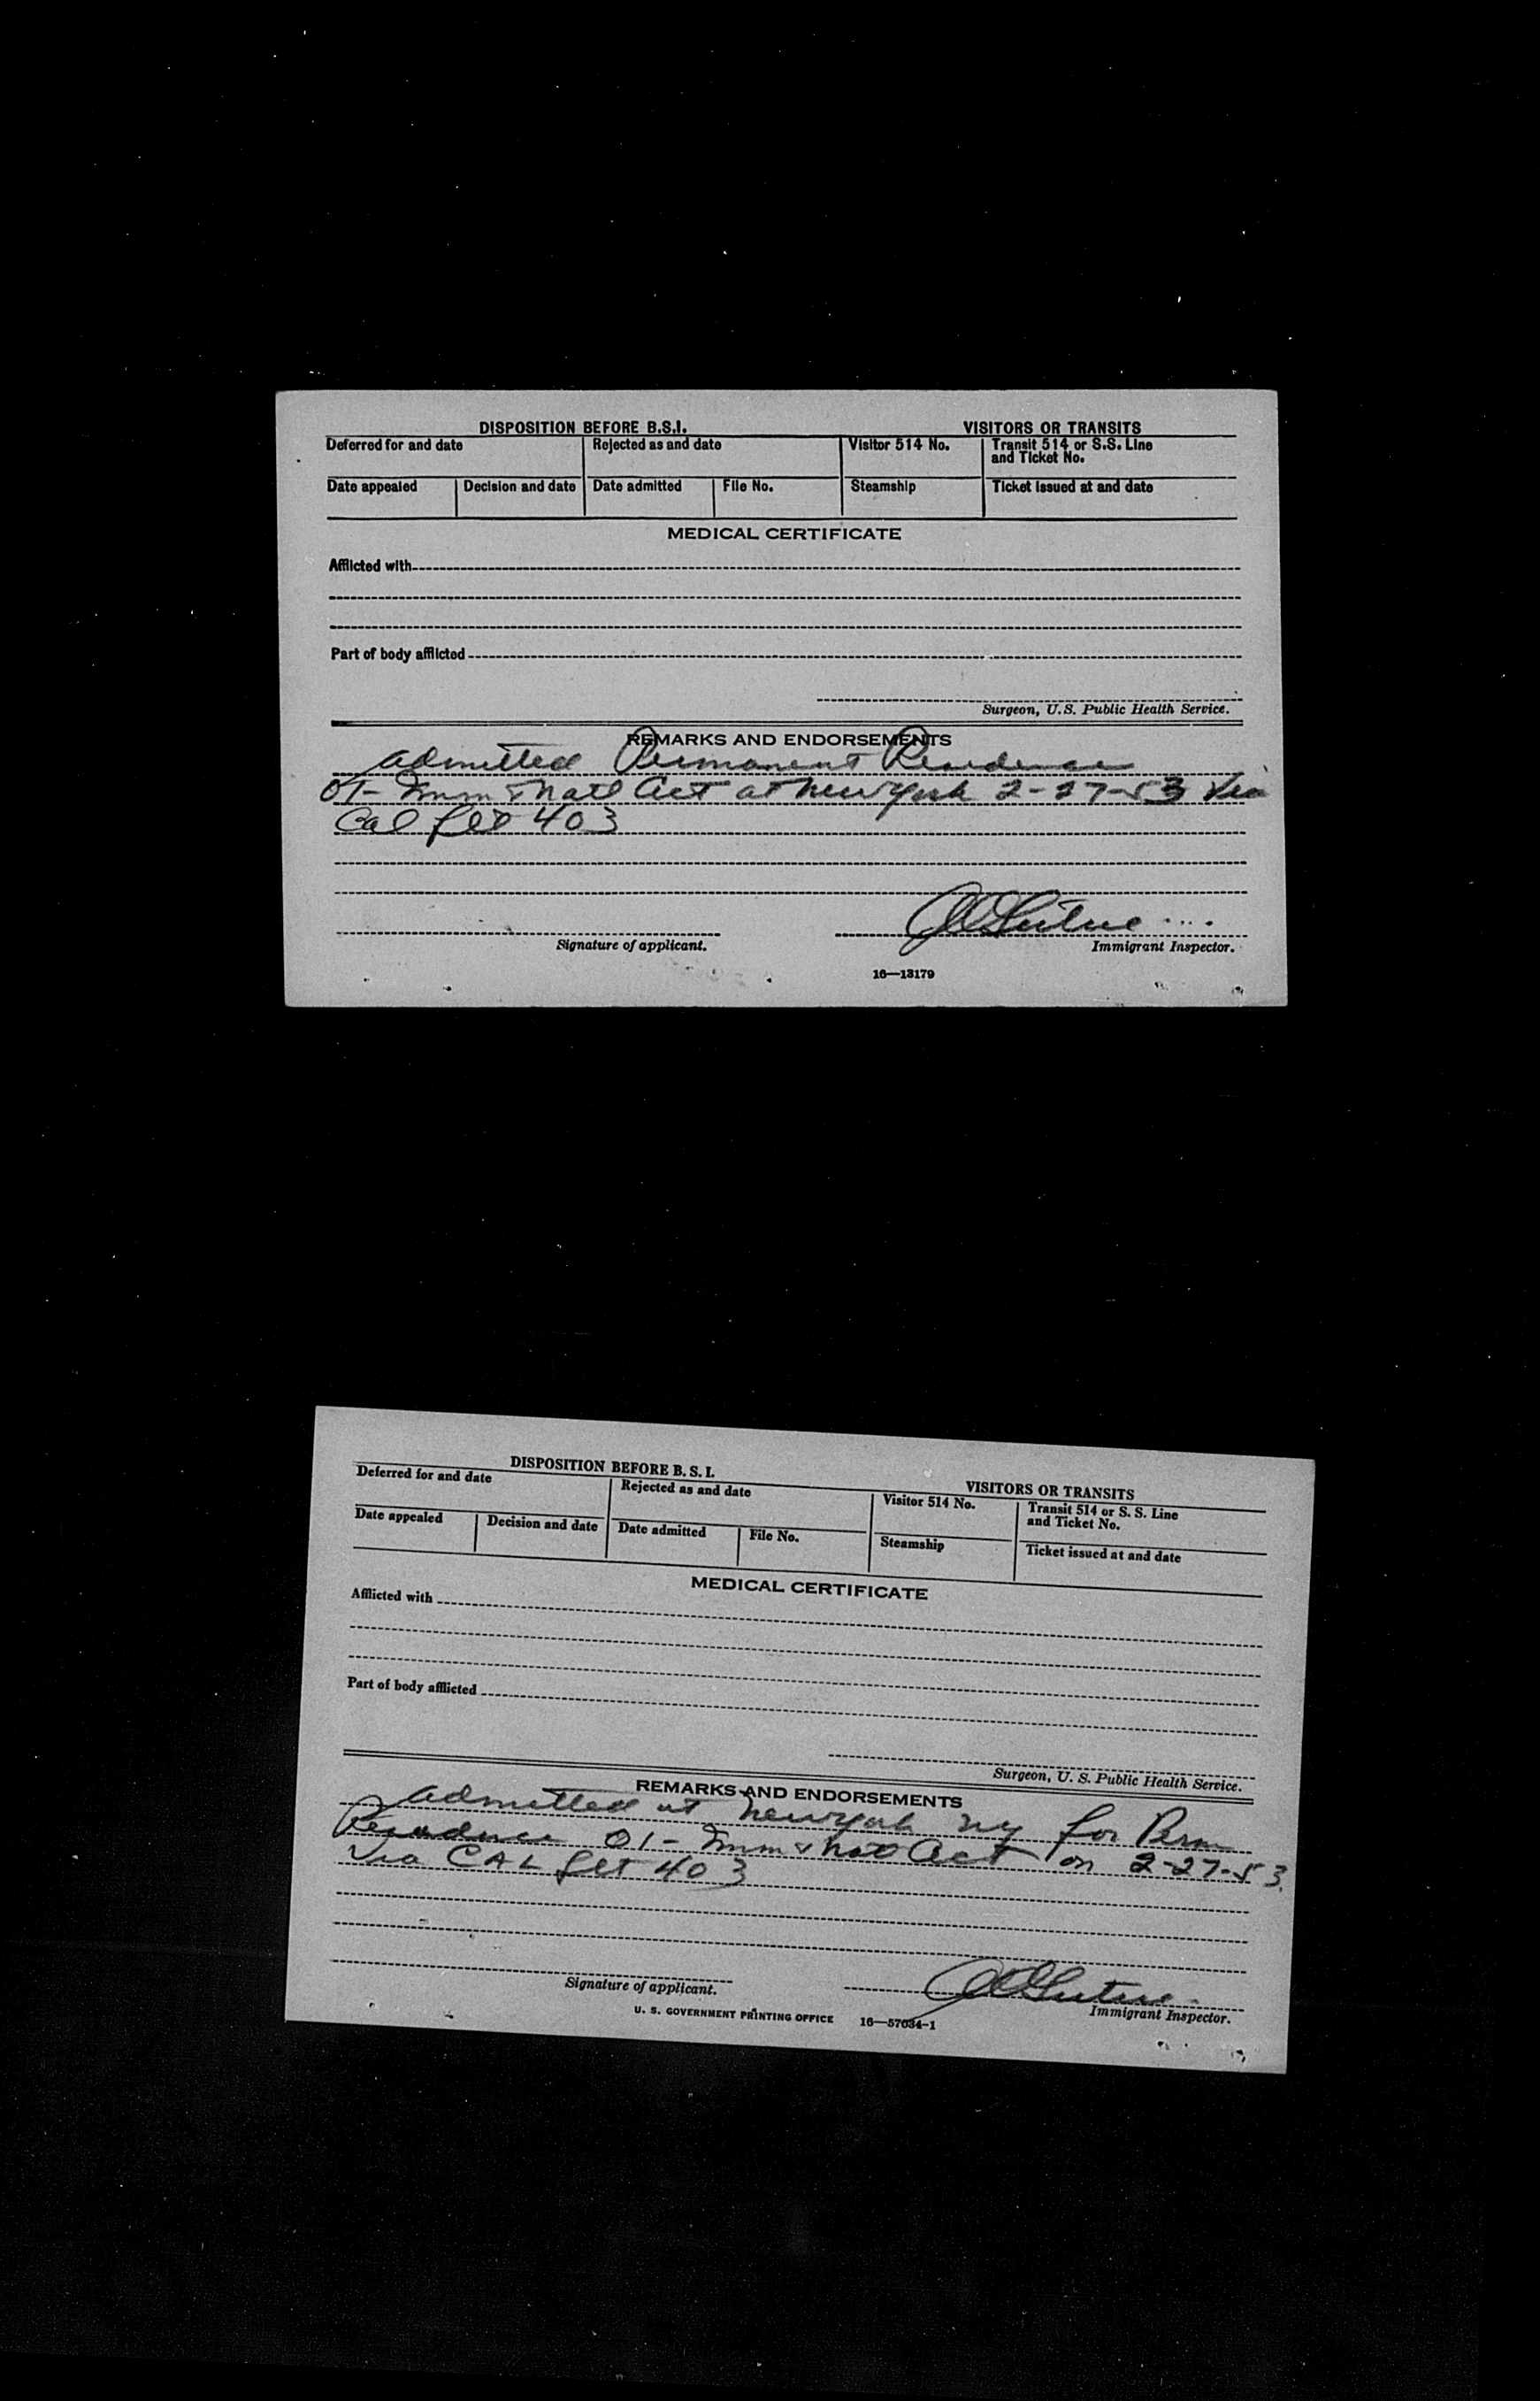 DISPOSITION BEFORE B.S.I. VISITORS OR TRANSITS
Deferred for and date Rejected as and date Visitor 514 No. Transit 514 or S.S. Line
and Ticket No.
Date appealed Decision and date Date admitted File No. Steamship Ticket issued at and date
MEDICAL CERTIFICATE
Afflicted with
Part of body afflicted
Surgeon, U.S. Public Health Service.
REMARKS AND ENDORSEMENTS
admitted Permanent Residence
01- Imm & Natl Act at New York 2-27-53 Via
Cal flt 403
Signature of applicant. Immigrant Inspector.
16—13179
DISPOSITION BEFORE B. S. I. VISITORS OR TRANSITS
Deferred for and date Rejected as and date Visitor 514 No. Transit 514 or S. S. Line
and Ticket No.
Date appealed Decision and date Date admitted File No. Steamship Ticket issued at and date
MEDICAL CERTIFICATE
Afflicted with
Part of body afflicted
Surgeon, U. S. Public Health Service.
REMARKS AND ENDORSEMENTS
admitted at New York NY for Perm
Residence 01- Imm & Nat Act on 2-27-53
Via CAL flt 403
Signature of applicant. Immigrant Inspector.
U. S. GOVERNMENT PRINTING OFFICE 16—57034-1